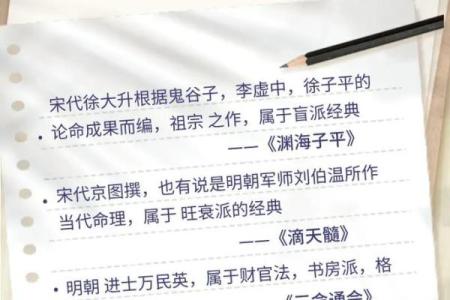 宋代徐大升根据鬼谷子，李虚中，徐子平的
• 论命成果而编，祖宗 之作，属于盲派经典
——《渊海子平》
• 宋代京图撰，也有说是明朝军师刘伯温所作
当代命理，属于 旺衰派的经典
——《滴天髓》
• 明朝 进士万民英，属于财官法，书房派，格
——《三命通会》